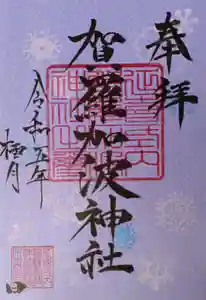 奉拝
賀羅加波神社
令和五年
極月 日